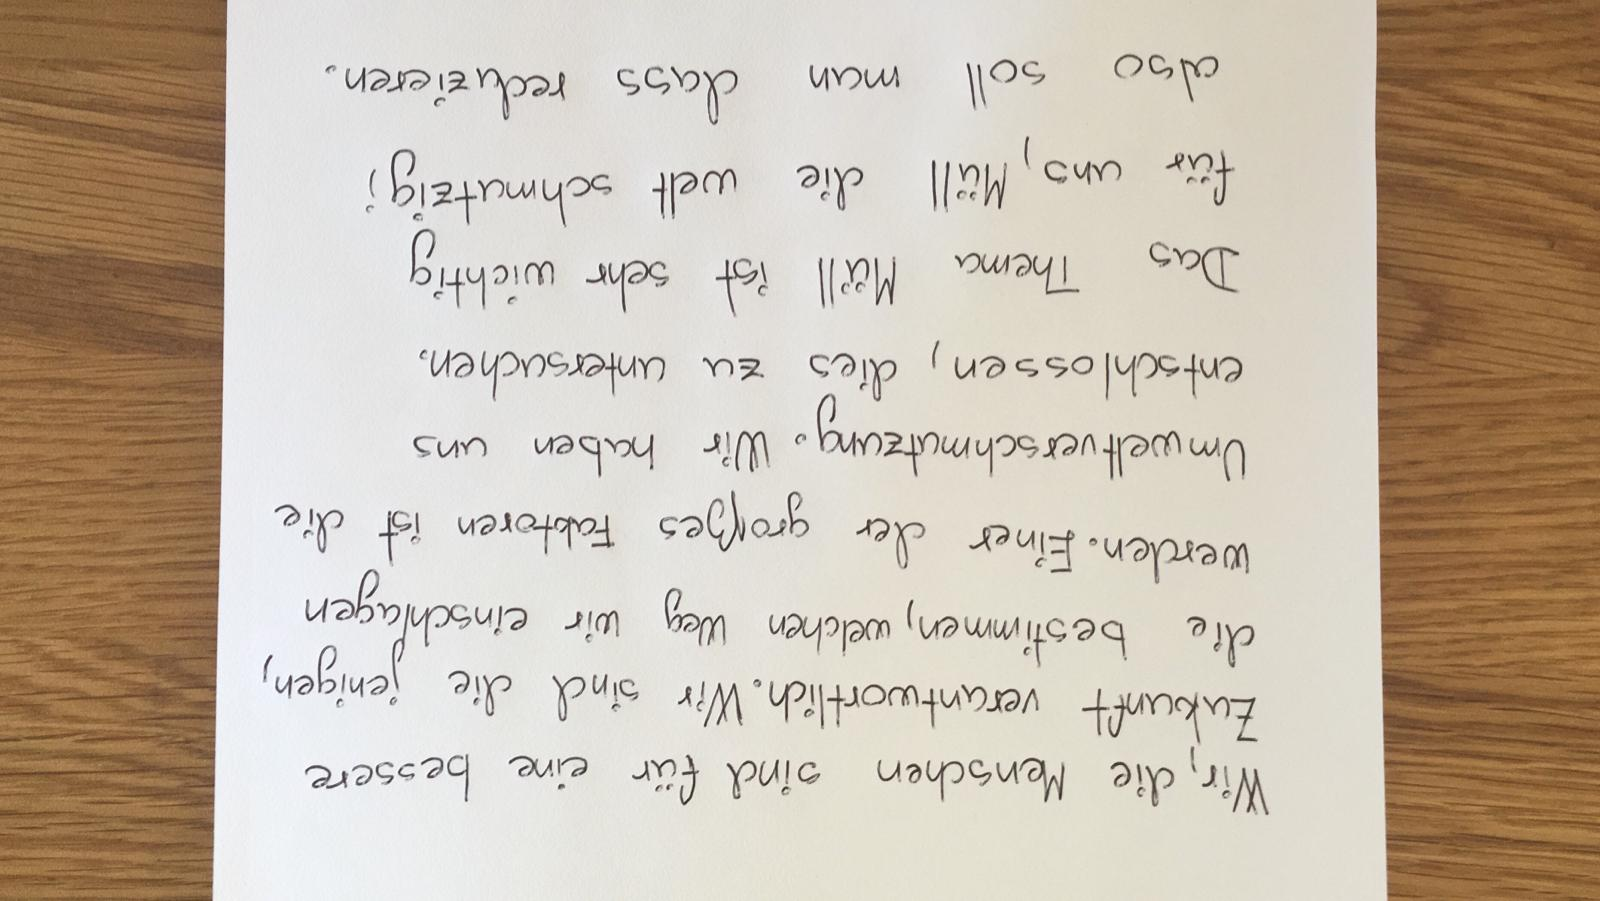 Wir, die Menschen sind für eine bessere
Zukunft verantwortlich. Wir sind die jenigen,
die bestimmen, welchen Weg wir einschlagen
werden. Einer der großes Faktoren ist die
Umweltverschmutzung. Wir haben uns
entschlossen, dies zu untersuchen.
Das Thema Müll ist sehr wichtig
für uns, Müll die welt schmutzig;
also soll man dass reduzieren.